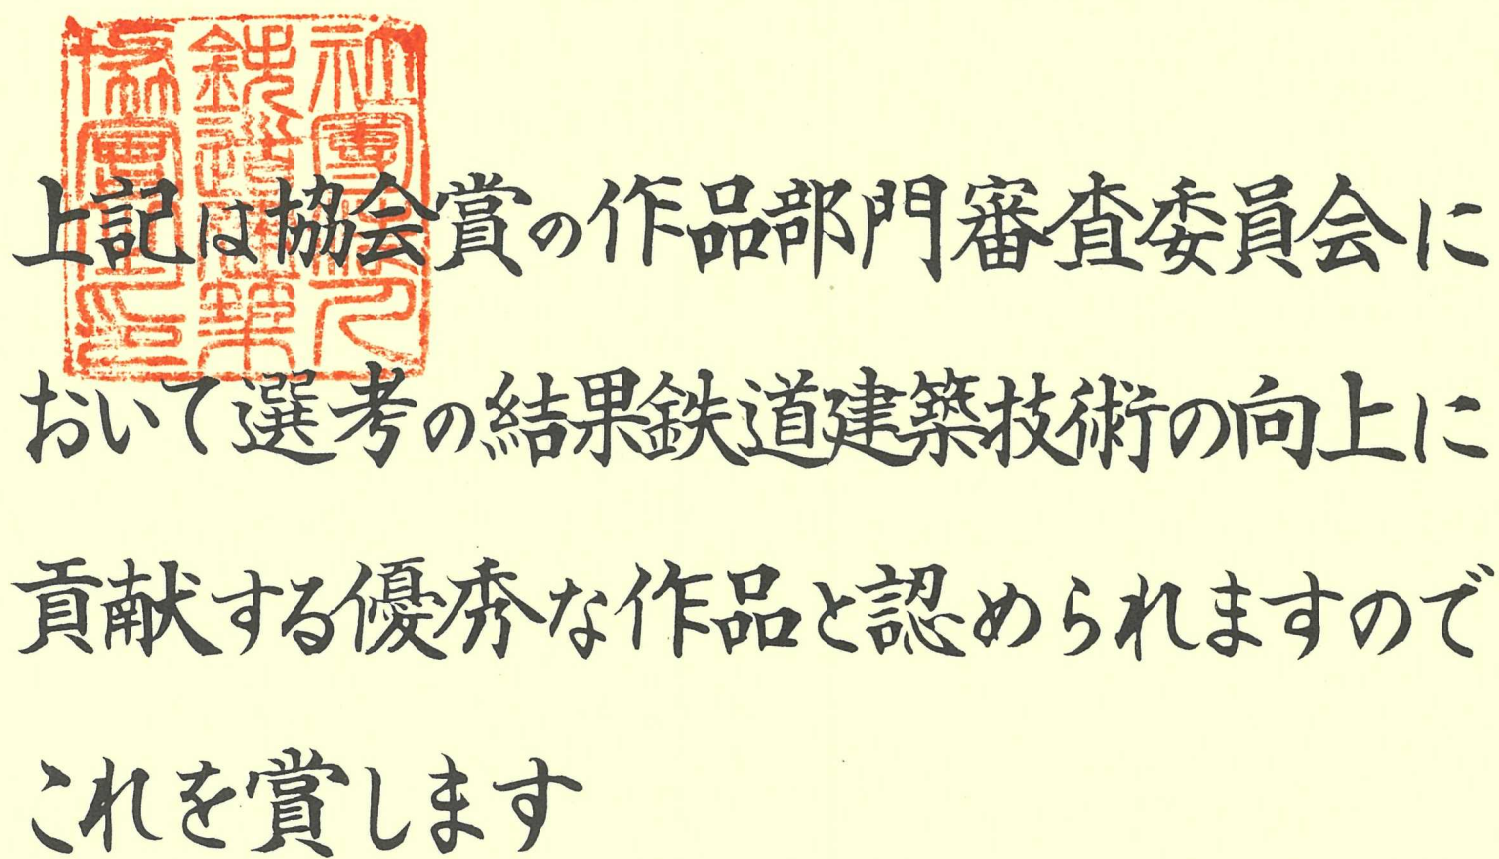 社團法人
鉄道建築
協會之印
上記は協会賞の作品部門審査委員会に
おいて選考の結果鉄道建築技術の向上に
貢献する優秀な作品と認められますので
これを賞します